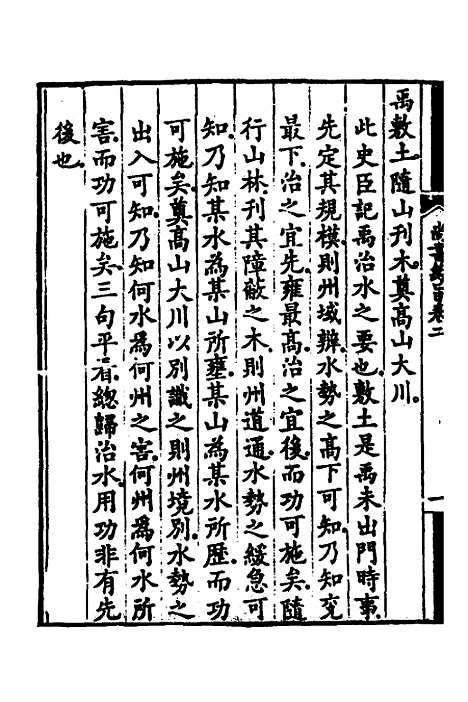 禹敷土隨山刊木奠高山大川
此史臣記禹治水之要也敷土是禹未出門時事
先定其規模則州域辨水勢之高下可知乃知兗
最下治之宜先雍最高治之宜後而功可施矣隨
行山林刊其障蔽之木則州道通水勢之緩急可
知乃知某水為某山所壅某山為某水所歷而功
可施矣奠高山大川以別識之則州境別水勢之
出入可知乃知何水爲何州之害何州爲何水所
害而功可施矣三句平看總歸治水用功非有先
後也
尚書約旨卷二
一